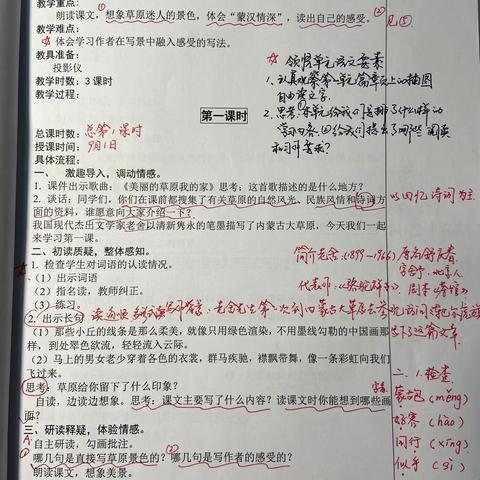 教学重点：
朗读课文，想象草原迷人的景色，体会“蒙汉情深”，读出自己的感受。② 见⑤
教学难点：
体会学习作者在写景中融入感受的写法。
教具准备：
投影仪
教学时数：3 课时
教学过程：
☆ 领悟单元语文要素
1、认真观察第一单元篇章页上的插图
自由读文字。
2、思考：①本单元给我们安排了什么样的
学习内容，②给我们提出了哪些阅读
和习作要求？
第一课时
总课时数：总第1课时
授课时间：9月1日
具体流程：
一、 激趣导入，调动情感。
1. 课件出示歌曲：《美丽的草原我的家》思考：这首歌描述的是什么地方？
2. 谈话：同学们，你们在课前都搜集了有关草原的自然风光、民族风情和诗词方面的资料，谁愿意向大家介绍一下？
以回忆诗词为主
我国现代杰出文学家老舍以清新隽永的笔墨描写了内蒙古大草原，今天我们一起
来学习第一课。
二、初读质疑，整体感知。
简介老舍：(1899-1966) 原名舒庆春
字舍予，北京人
代表作：《骆驼祥子》、剧本《茶馆》
1. 检查学生对词语的认读情况。
（1）出示词语
（2）指名读，教师纠正。
（3）练习。
2. 出示长句
（1）那些小丘的线条是那么柔美，就像只用绿色渲染，不用墨线勾勒的中国画那
样，到处翠色欲流，轻轻流入云际。
（2）马上的男女老少穿着各色的衣裳，群马疾驰，襟飘带舞，像一条彩虹向我们
飞过来。
思考：草原给你留下了什么印象？
自读，边读边想象。思考：课文主要写了什么内容？读课文时你能想到哪些画
面？
二、1.检查
蒙古包（měng）
好客（hào）
同行（xíng）
似乎（sì）
三、研读释疑，体验情感。
自主研读，勾画批注。
① 哪几句是直接写草原景色的？② 哪几句是写作者的感受的？
朗读课文，想象美景。